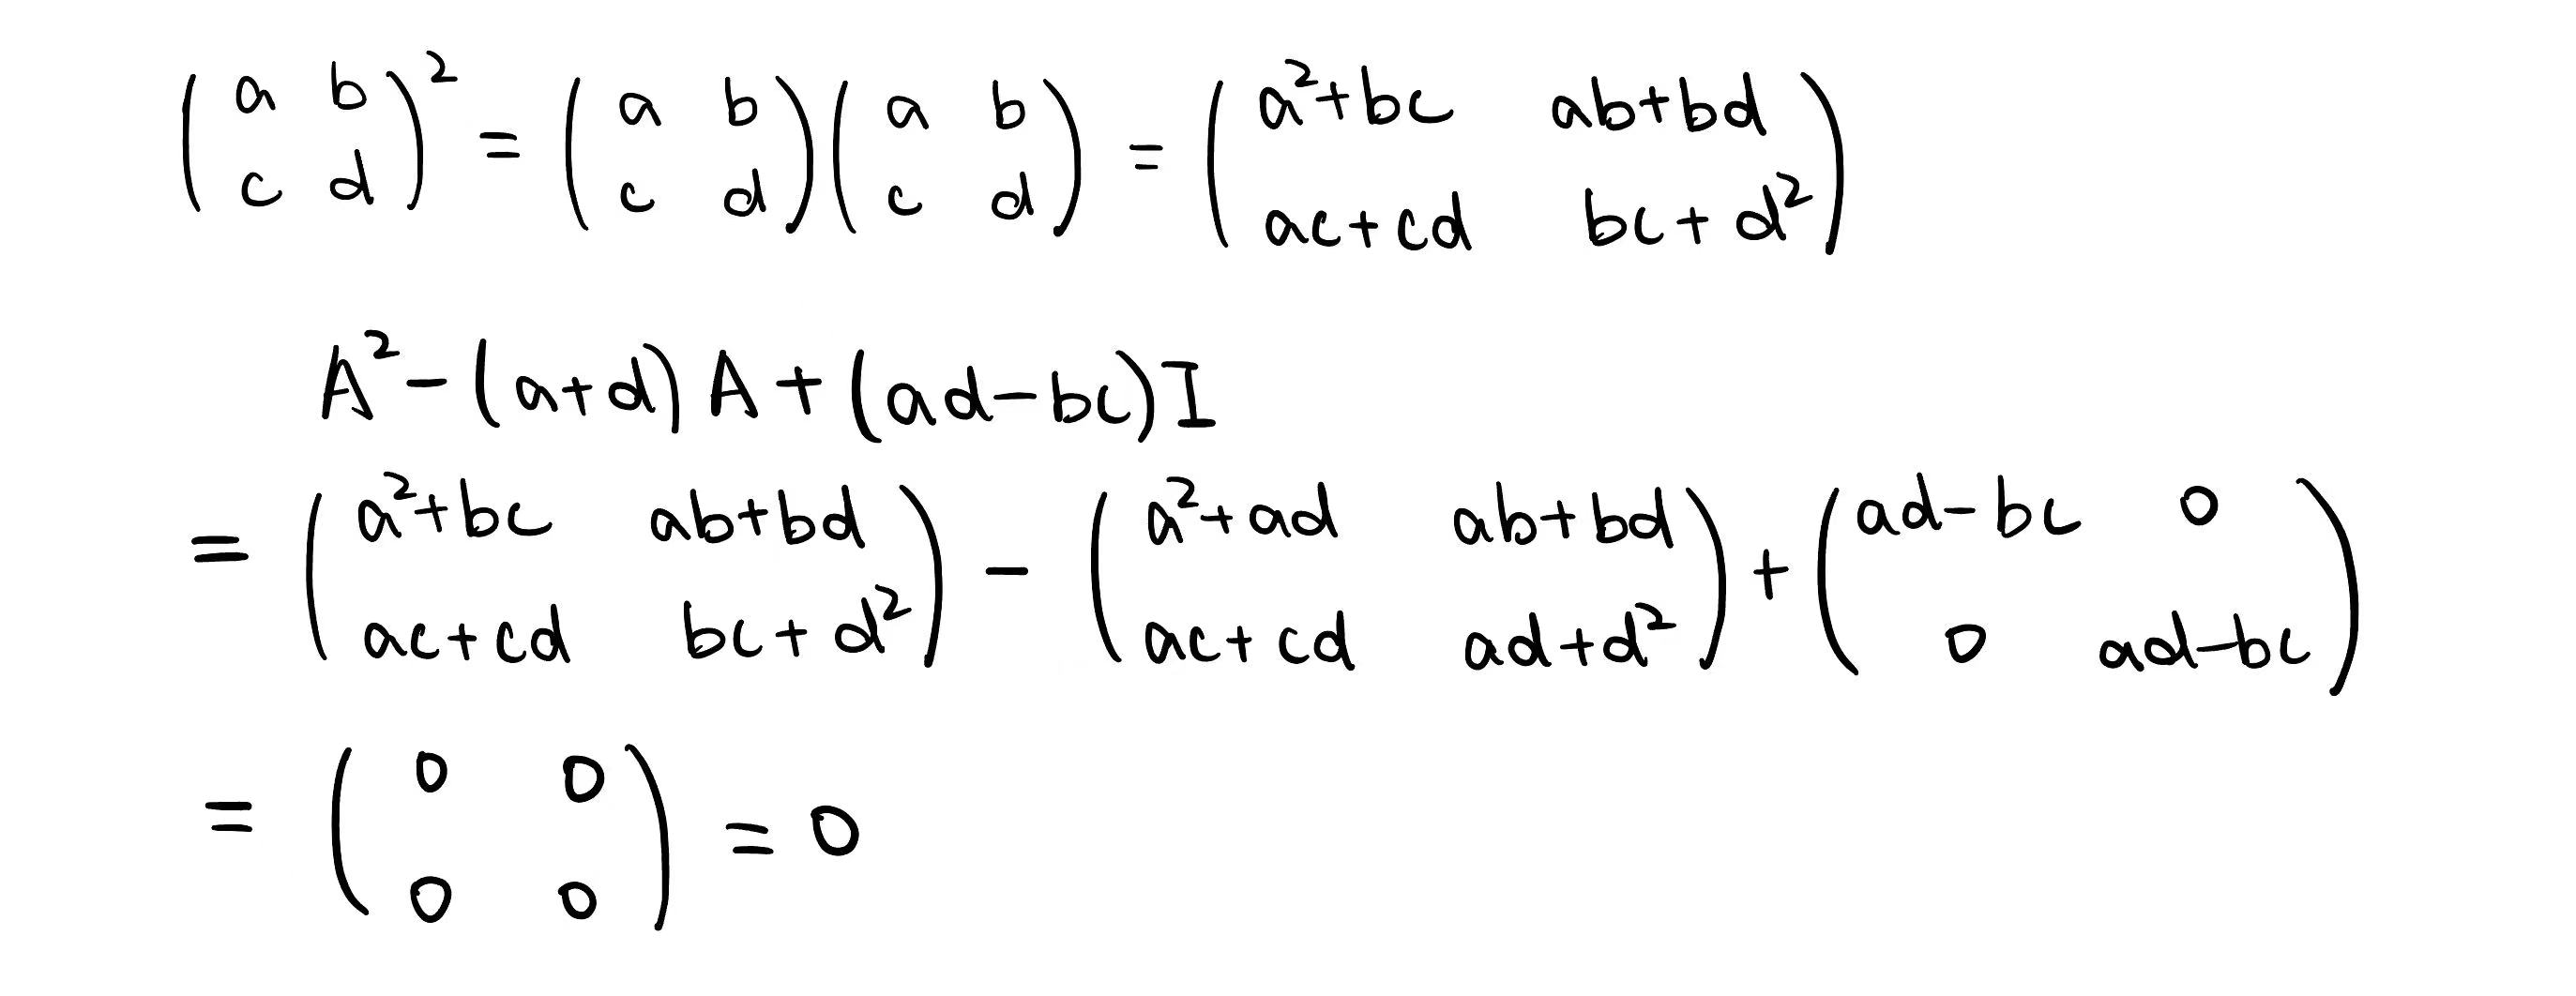 \begin{pmatrix} a & b \\ c & d \end{pmatrix}^2 = \begin{pmatrix} a & b \\ c & d \end{pmatrix} \begin{pmatrix} a & b \\ c & d \end{pmatrix} = \begin{pmatrix} a^2+bc & ab+bd \\ ac+cd & bc+d^2 \end{pmatrix}
A^2-(a+d)A+(ad-bc)I
= \begin{pmatrix} a^2+bc & ab+bd \\ ac+cd & bc+d^2 \end{pmatrix} - \begin{pmatrix} a^2+ad & ab+bd \\ ac+cd & ad+d^2 \end{pmatrix} + \begin{pmatrix} ad-bc & 0 \\ 0 & ad-bc \end{pmatrix}
= \begin{pmatrix} 0 & 0 \\ 0 & 0 \end{pmatrix} = 0